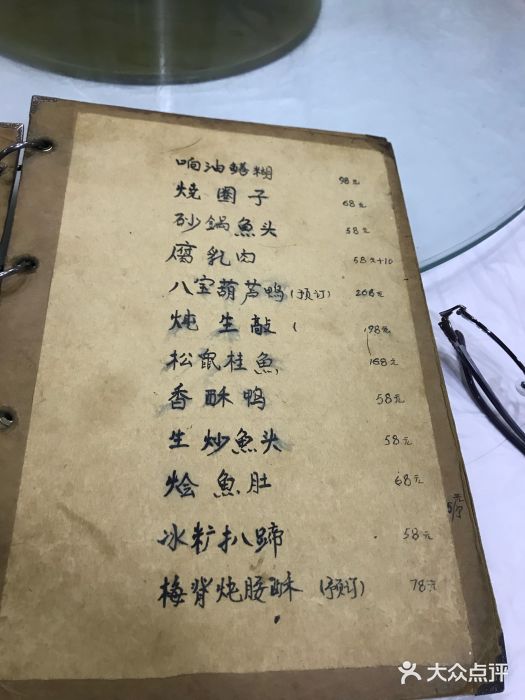 响油鳝糊 98元
烧圈子 68元
砂锅魚头 58元
腐乳肉 58元+10
八宝葫芦鸭(预订) 268元
炖生敲( 198元
松鼠桂魚 168元
香酥鸭 58元
生炒魚头 58元
烩魚肚 68元
冰籿扒蹄 58元
梅脊炖腰酥(预订) 78元
大众点评